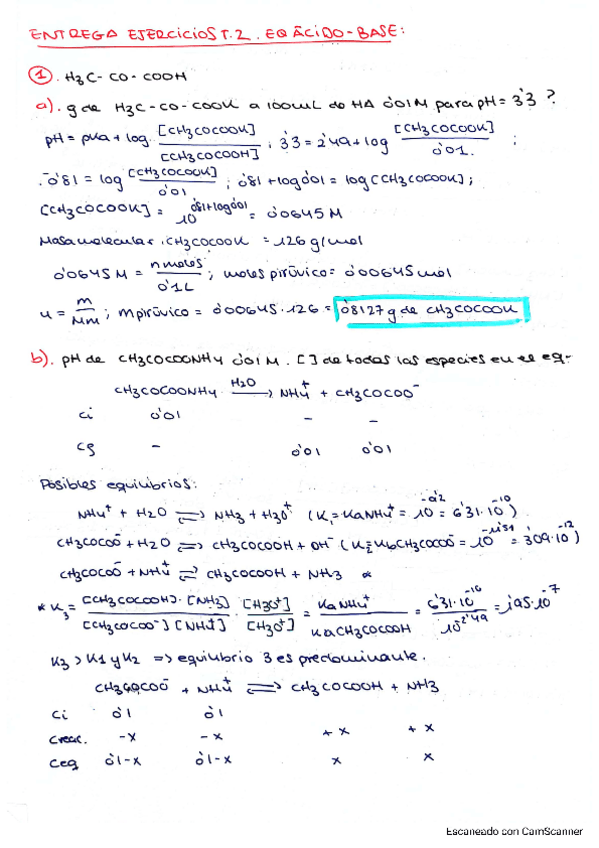 ENTREGA EJERCICIOS T.2. EQ ÁCIDO-BASE:
① H3C-CO-COOH
a). g de H3C-CO-COOK a 100mL de HA 0'01M para pH = 3'3 ?
pH = pKa + log [CH3COCOOK]/[CH3COCOOH] ; 3'3 = 2'49 + log [CH3COCOOK]/0'01 ;
0'81 = log [CH3COCOOK]/0'01 ; 0'81 + log 0'01 = log [CH3COCOOK] ;
[CH3COCOOK] = 10^0'81+log0'01 = 0'0645 M
Masa molecular CH3COCOOK = 126 g/mol
0'0645 M = n moles/0'1L ; moles pirúvico = 0'00645 mol
n = m/Mm ; m pirúvico = 0'00645 · 126 = 0'8127 g de CH3COCOOK
b). pH de CH3COCOONH4 0'01 M. [] de todas las especies en el eq.
CH3COCOONH4 H2O → NH4+ + CH3COCOO-
Ci 0'01 - -
Cg - 0'01 0'01
Posibles equilibrios:
NH4+ + H2O ⇌ NH3 + H3O+ (K1 = KaNH4+ = 10^-9'2 = 6'31·10^-10)
CH3COCOO- + H2O ⇌ CH3COCOOH + OH- (K2 = KbCH3COCOO- = 10^-11'51 = 3'09·10^-12)
CH3COCOO- + NH4+ ⇌ CH3COCOOH + NH3 *
* K3 = [CH3COCOOH]·[NH3]/[CH3COCOO-][NH4+] · [H3O+]/[H3O+] = KaNH4+/KaCH3COCOOH = 6'31·10^-10/10^-2'49 = 1'95·10^-7
K3 > K1 y K2 => equilibrio 3 es predominante.
CH3COCOO- + NH4+ ⇌ CH3COCOOH + NH3
Ci 0'1 0'1
Creac. -x -x +x +x
Ceq 0'1-x 0'1-x x x
Escaneado con CamScanner